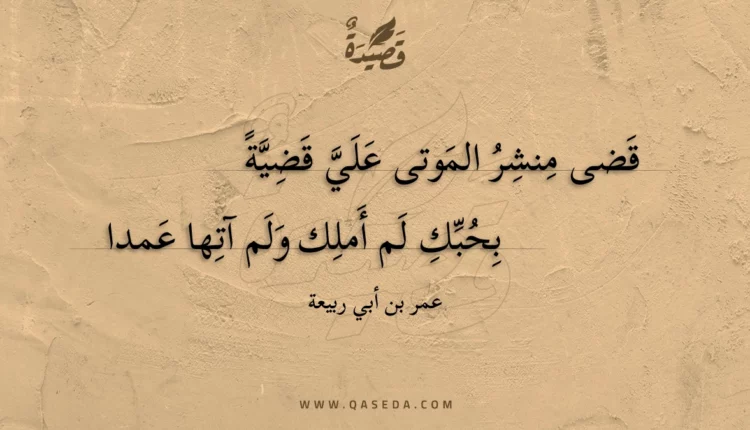 قَصِيدَةٌ
قَضى مِنشِرُ المَوتى عَلَيَّ قَضِيَّةً
بِحُبِّكِ لَم أَملِك وَلَم آتِها عَمدا
عمر بن أبي ربيعة
WWW.QASEDA.COM